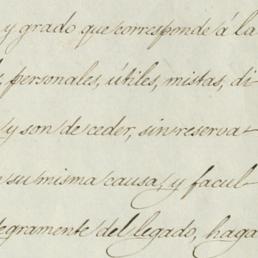 y grado que corresponde á la
personales, útiles, mistas, di
y son de ceder, sin reserva
su misma causa, y facul
tegramente del legado, haga